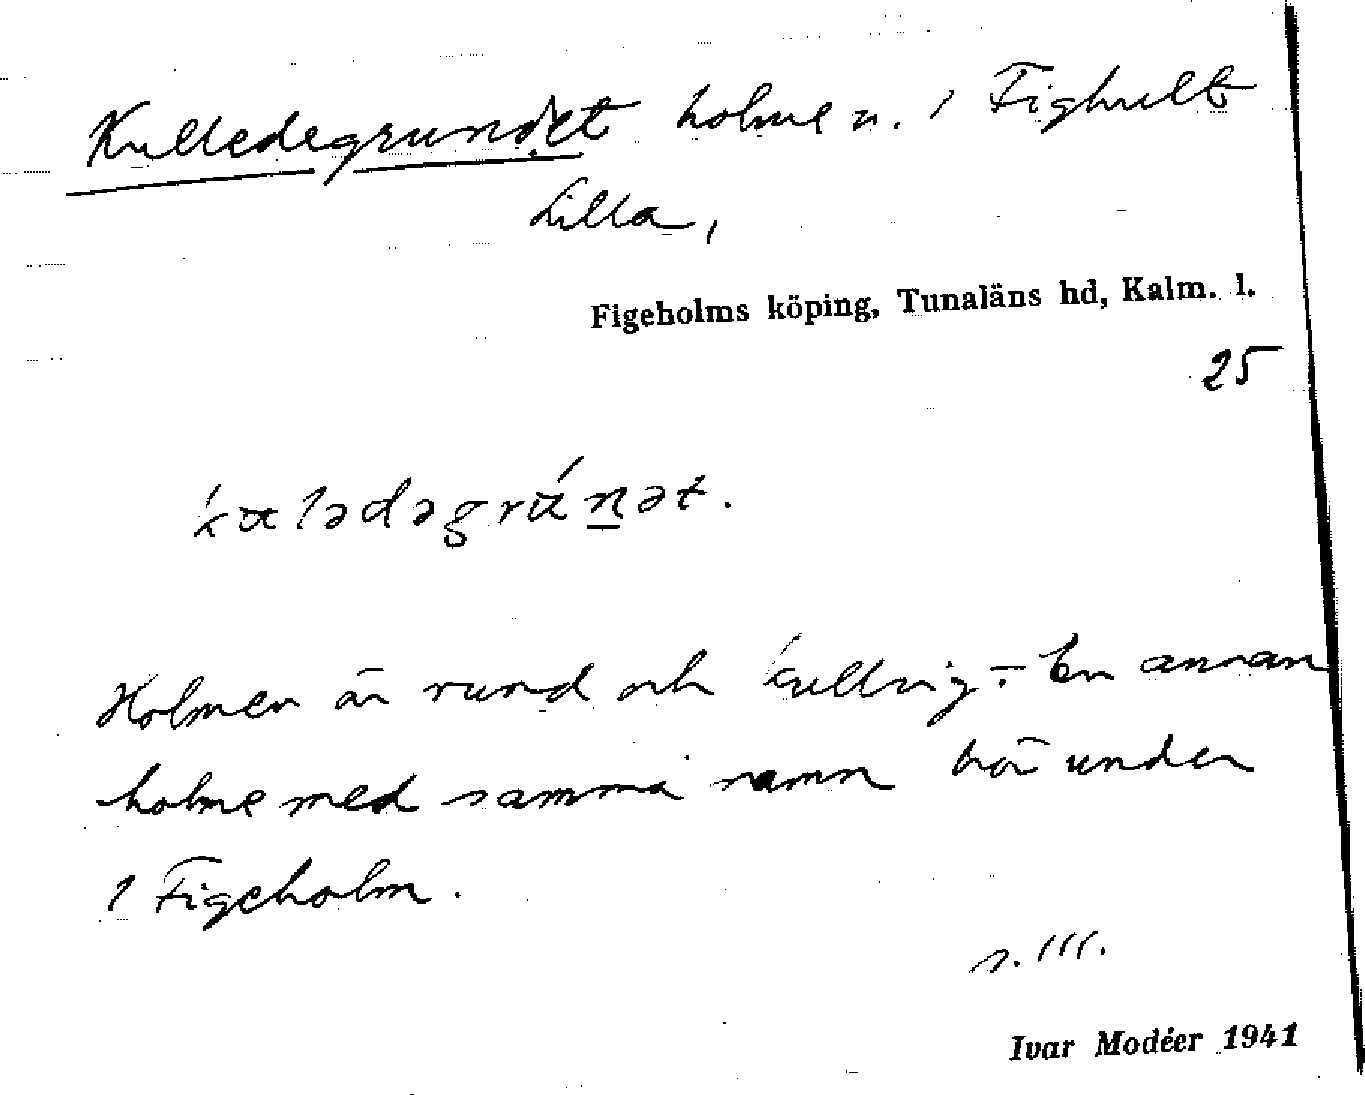 Kulledegrundet holme u. 1 Fighult
Lilla,
Figeholms köping, Tunaläns hd, Kalm. l.
25
kuledəgrúnət.
Holmen är rund och kullrig. – En annan
holme med samma namn hör under
1 Figeholm.
s. 111.
Ivar Modéer 1941